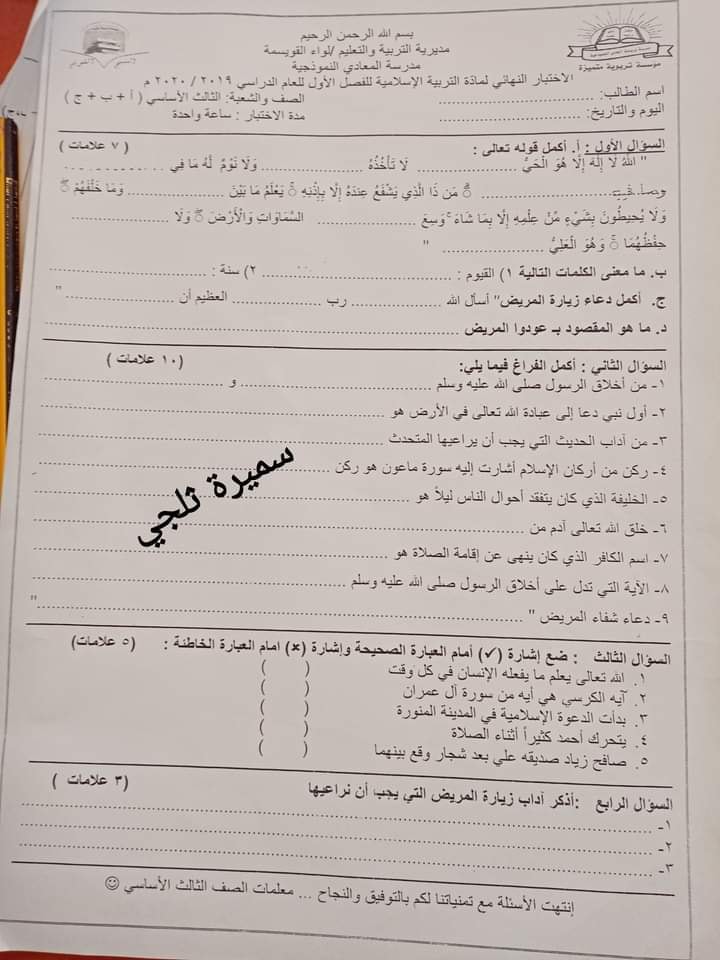 بسم الله الرحمن الرحيم
مديرية التربية والتعليم /لواء القويسمة
مدرسة المعادي النموذجية
مؤسسة تربوية متميزة
الاختبار النهائي لمادة التربية الإسلامية للفصل الأول للعام الدراسي ٢٠١٩ / ٢٠٢٠ م
اسم الطالب: .................... الصف والشعبة: الثالث الأساسي ( أ + ب + ج )
اليوم والتاريخ: .................... مدة الاختبار : ساعة واحدة
السؤال الأول : أ. أكمل قوله تعالى : ( ٧ علامات )
" اللهُ لَا إِلَهَ إِلَّا هُوَ الْحَيُّ .................... لَا تَأْخُذُهُ .................... وَلَا نَوْمٌ لَهُ مَا فِي ....................
.................... مَن ذَا الَّذِي يَشْفَعُ عِندَهُ إِلَّا بِإِذْنِهِ ۚ يَعْلَمُ مَا بَيْنَ .................... وَمَا خَلْفَهُمْ ۖ
وَلَا يُحِيطُونَ بِشَيْءٍ مِّنْ عِلْمِهِ إِلَّا بِمَا شَاءَ ۚ وَسِعَ .................... السَّمَاوَاتِ وَالْأَرْضَ ۖ وَلَا ....................
حِفْظُهُمَا ۚ وَهُوَ الْعَلِيُّ .................... "
ب. ما معنى الكلمات التالية ١) القيوم : .................... ٢) سنة : ....................
ج. أكمل دعاء زيارة المريض" أسأل الله .................... رب .................... العظيم أن .................... "
د. ما هو المقصود بـ عودوا المريض ....................
السؤال الثاني : أكمل الفراغ فيما يلي: (١٠ علامات )
١- من أخلاق الرسول صلى الله عليه وسلم .................... و ....................
٢- أول نبي دعا إلى عبادة الله تعالى في الأرض هو ....................
٣- من آداب الحديث التي يجب أن يراعيها المتحدث ....................
٤- ركن من أركان الإسلام أشارت إليه سورة ماعون هو ركن ....................
٥- الخليفة الذي كان يتفقد أحوال الناس ليلاً هو ....................
٦- خلق الله تعالى آدم من ....................
٧- اسم الكافر الذي كان ينهى عن إقامة الصلاة هو ....................
٨- الآية التي تدل على أخلاق الرسول صلى الله عليه وسلم ....................
٩- دعاء شفاء المريض " .................... "
سميرة ثلجي
السؤال الثالث : ضع إشارة (✓) أمام العبارة الصحيحة وإشارة (×) امام العبارة الخاطئة : (٥ علامات)
١. الله تعالى يعلم ما يفعله الإنسان في كل وقت ( )
٢. آيه الكرسي هي أيه من سورة آل عمران ( )
٣. بدأت الدعوة الإسلامية في المدينة المنورة ( )
٤. يتحرك أحمد كثيراً أثناء الصلاة ( )
٥. صافح زياد صديقه علي بعد شجار وقع بينهما ( )
السؤال الرابع :أذكر آداب زيارة المريض التي يجب أن نراعيها (٣ علامات )
١- ....................
٢- ....................
٣- ....................
إنتهت الأسئلة مع تمنياتنا لكم بالتوفيق والنجاح ... معلمات الصف الثالث الأساسي ☺